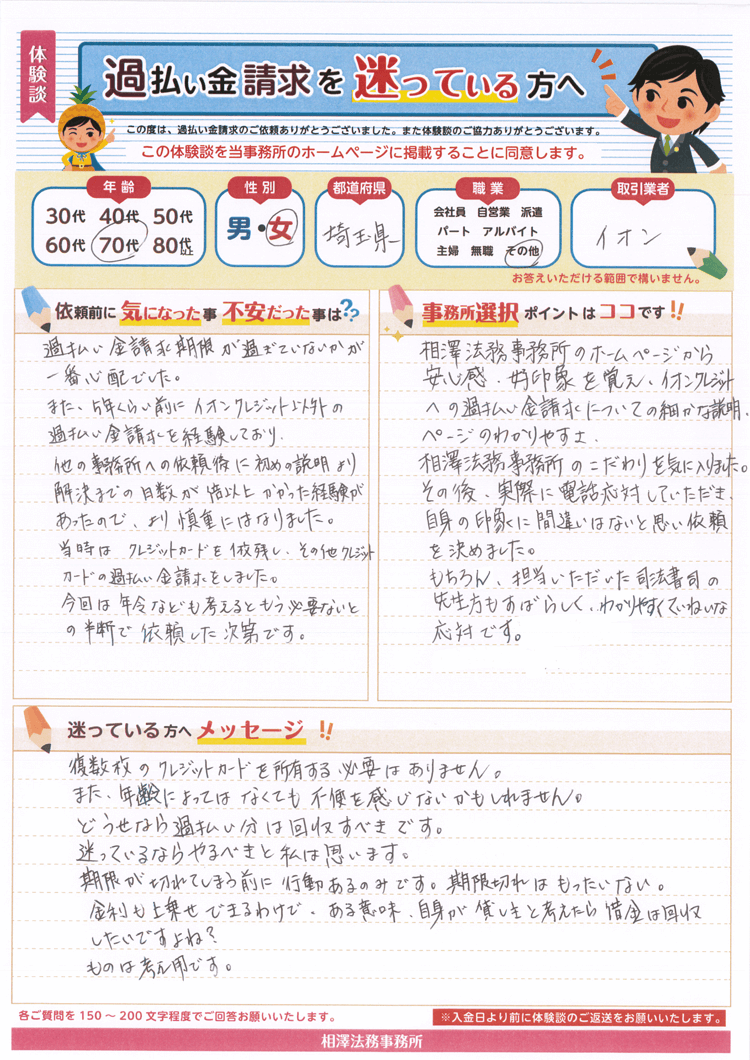 体験談
過払い金請求を迷っている方へ
この度は、過払い金請求のご依頼ありがとうございました。また体験談のご協力ありがとうございます。
この体験談を当事務所のホームページに掲載することに同意します。
年齢
30代 40代 50代
60代 70代 80代以上
性別
男・女
都道府県
埼玉県
職業
会社員 自営業 派遣
パート アルバイト
主婦 無職 その他
取引業者
イオン
お答えいただける範囲で構いません。
依頼前に気になった事 不安だった事は??
過払い金請求期限が過ぎていないかが
一番心配でした。
また、5年くらい前にイオンクレジット以外の
過払い金請求を経験しており、
他の事務所への依頼後に初めの説明より
解決までの日数が倍以上かかった経験が
あったので、より慎重にはなりました。
当時はクレジットカードを1枚残し、その他クレジット
カードの過払い金請求をしました。
今回は年令なども考えるともう必要ないと
の判断で依頼した次第です。
事務所選択ポイントはココです!!
相澤法務事務所のホームページから
安心感・好印象を覚え、イオンクレジット
への過払い金請求についての細かな説明、
ページのわかりやすさ、
相澤法務事務所のこだわりを気に入りました。
その後、実際に電話応対していただき、
自身の印象に間違いはないと思い依頼
を決めました。
もちろん、担当いただいた司法書司の
先生方もすばらしく、わかりやすくていねいな
応対です。
迷っている方へメッセージ!!
復数枚のクレジットカードを所有する必要はありません。
また、年齢によってはなくても不便を感じないかもしれません。
どうせなら過払い分は回収すべきです。
迷っているならやるべきと私は思います。
期限が切れてしまう前に行動あるのみです。期限切れはもったいない。
金利も上乗せできるわけで、ある意味、自身が貸し主と考えたら借金は回収
したいですよね?
ものは考え用です。
各ご質問を150～200文字程度でご回答お願いいたします。
※入金日より前に体験談のご返送をお願いいたします。
相澤法務事務所